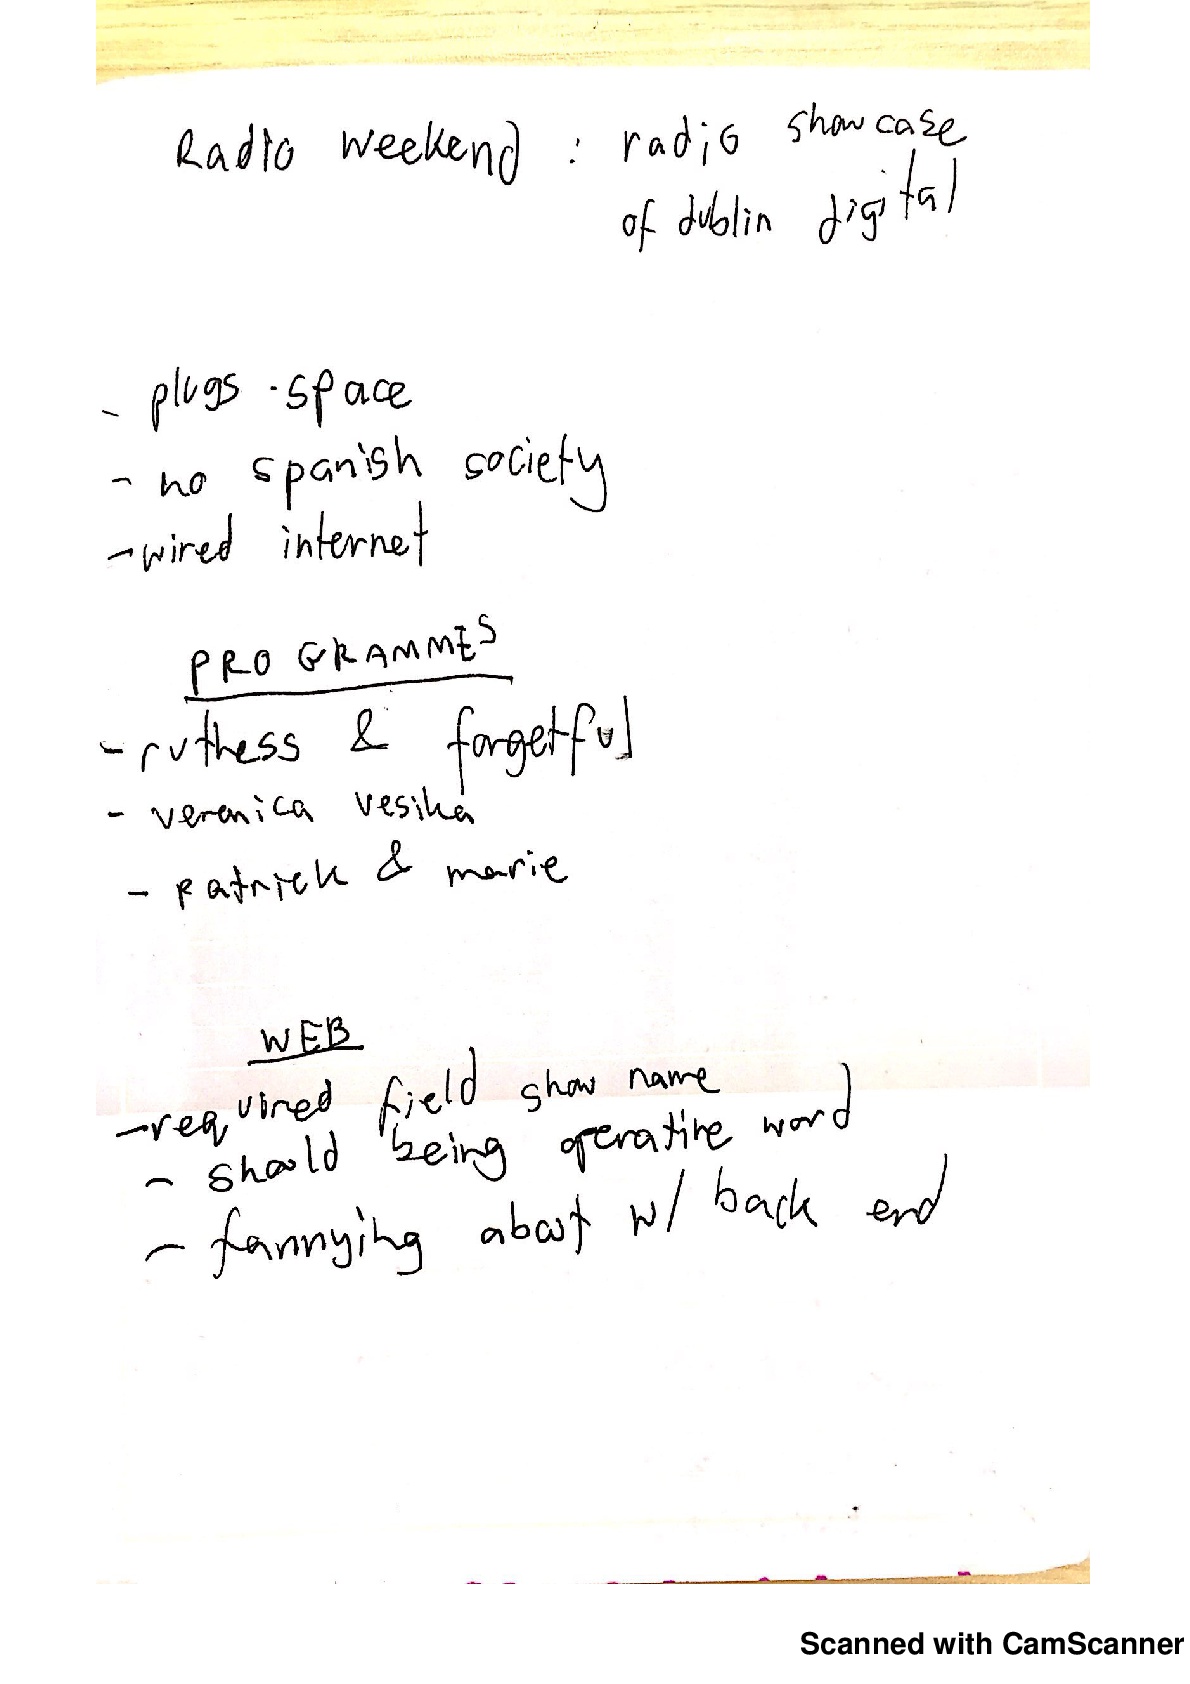 Radio weekend : radio showcase
of dublin digital
- plugs · space
- no spanish society
- wired internet
PROGRAMMES
- ruthess & forgetful
- veronica vesika
- Patrick & marie
WEB
- required field show name
- should being operative word
- fannying about w/ back end
Scanned with CamScanner